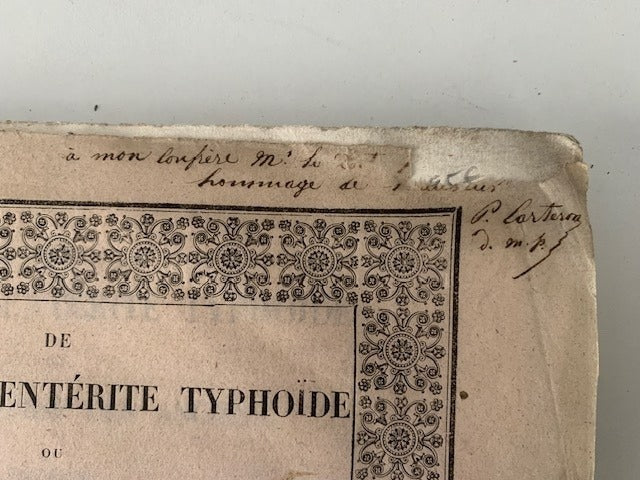 à mon confrère Mr. le
hommage de
P. Carteron
d. m. p.
DE
ENTÉRITE TYPHOÏDE
OU